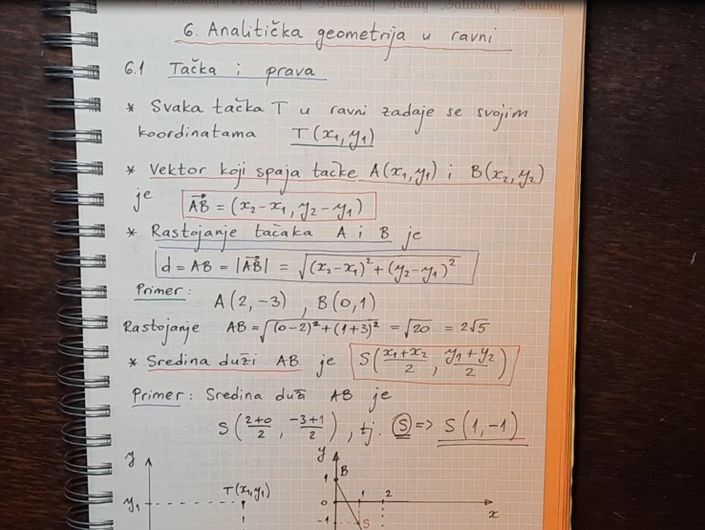 6. Analitička geometrija u ravni
6.1 Tačka i prava
* Svaka tačka T u ravni zadaje se svojim
koordinatama T(x₁,y₁)
* Vektor koji spaja tačke A(x₁,y₁) i B(x₂,y₂)
je AB⃗ = (x₂-x₁, y₂-y₁)
* Rastojanje tačaka A i B je
d = AB = |AB⃗| = √((x₂-x₁)²+(y₂-y₁)²)
Primer: A(2,-3), B(0,1)
Rastojanje AB = √((0-2)²+(1+3)²) = √20 = 2√5
* Sredina duži AB je S((x₁+x₂)/2, (y₁+y₂)/2)
Primer: Sredina duži AB je
S((2+0)/2, (-3+1)/2), tj. Ⓢ => S(1,-1)
y
T(x₁,y₁)
y₁
y
B
1
0
1 2
x
-1
S